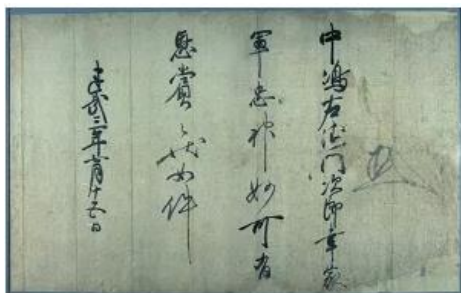 中嶋右衛門次郎幸家
軍忠神妙可有
恩賞之状如件
建武三年六月十五日